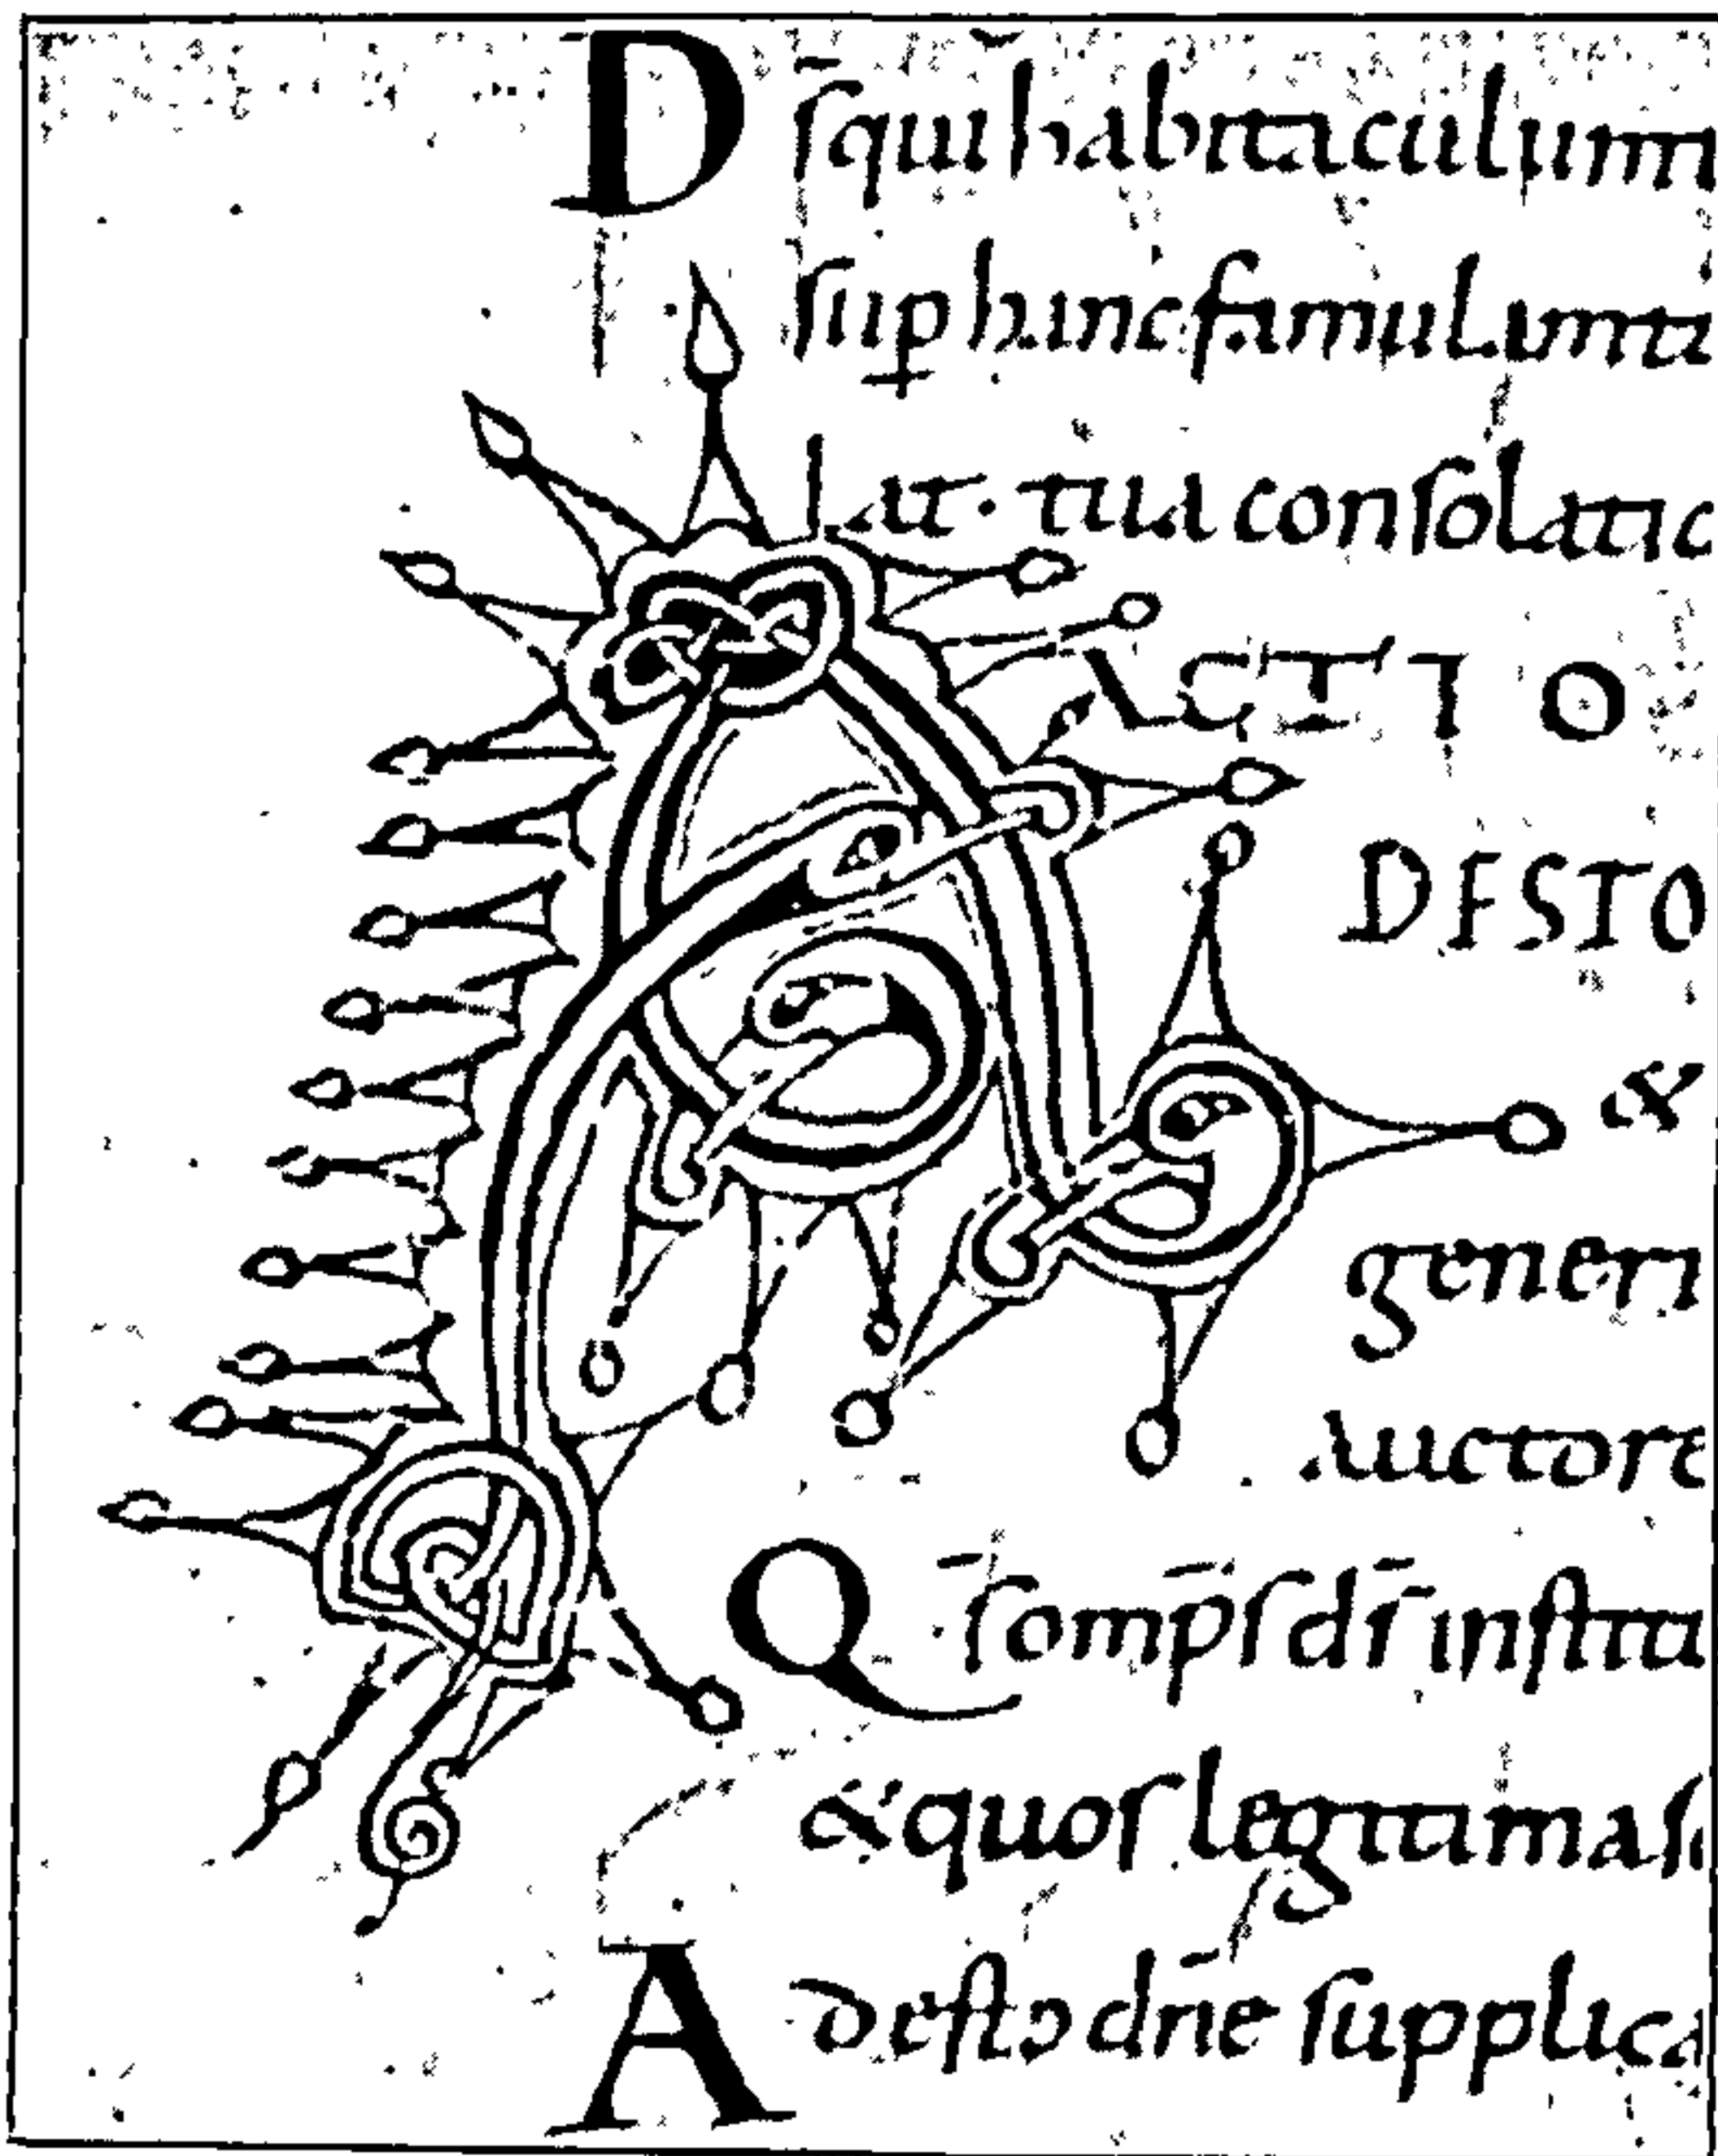 D s̄ qui habitaculum
sup̱ hunc famulum tu
lat · tua consolatio
ACTIO
A DESTO
&
generi
auctore
Q s̄ omp̄s d̄s institu
& quos legitima so
A desto dn̄e supplica